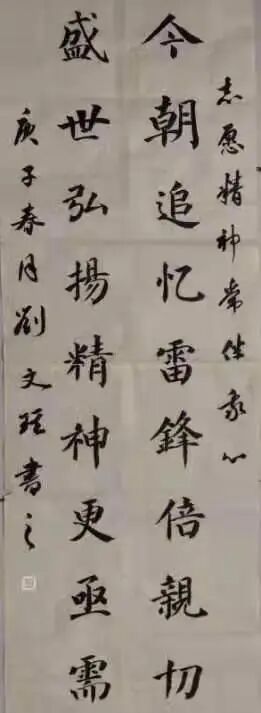 志愿精神常伴我心
今朝追忆雷鋒倍親切
盛世弘揚精神更亟需
庚子春月劉文珵書之